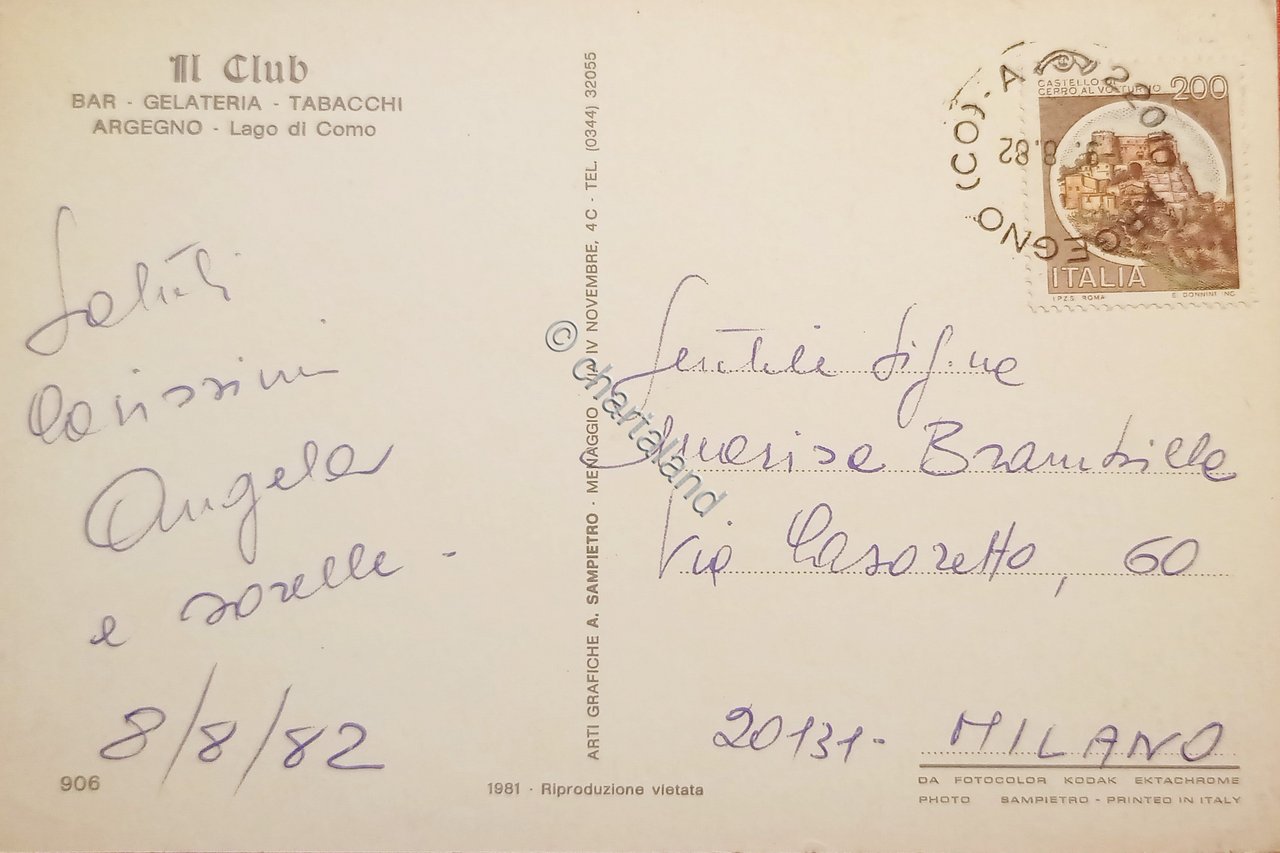 Il Club
BAR - GELATERIA - TABACCHI
ARGEGNO - Lago di Como
Saluti
Carissimi
Angela
e sorelle -
8/8/82
906
ARTI GRAFICHE A. SAMPIETRO - MENAGGIO VIA IV NOVEMBRE, 4 C - TEL. (0344) 32055
1981 - Riproduzione vietata
© chartaland
CASTELLO
CERRO AL VOLTURNO 200
ITALIA
I.P.Z.S. ROMA E. DONNINI INC.
22010 ARGEGNO (CO) - A
-9.8.82
Gentile Sig.na
Marisa Brambilla
Via Casoretto, 60
20131 - MILANO
DA FOTOCOLOR KODAK EKTACHROME
PHOTO SAMPIETRO - PRINTED IN ITALY